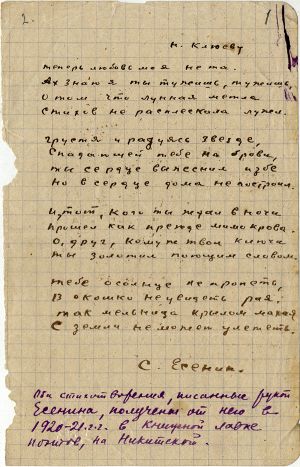 2.
1
Н. Клюеву
теперь любовь моя не та.
Ах знаю я ты тужишь, тужишь
О том что лунная метла
Стихов не расплескала лужи.
Грустя и радуясь звезде,
Спадающей тебе на брови,
ты сердце выпеснил избе
Но в сердце дома не построил.
И тот, кого ты ждал в ночи
Прошел как прежде мимо крова.
О, друг, кому ж твои ключи
ты золотил поющим словом.
тебе о солнце не пропеть,
В окошко не увидеть рая.
так мельница крылом махая
С земли не может улететь.
С. Есенин.
Оба стихотворения, писанные рукой
Есенина, получены от него в
1920-21 г.г. в Книжной лавке
поэтов, на Никитской.